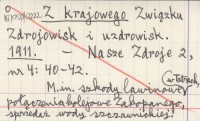 Z krajowego Związku
Zdrojowisk i uzdrowisk.
1911. — Nasze Zdroje 2,
nr 4: 40-42.
w Tatrach,
M.in. szkody lawinowe
połączenia kolejowe Zakopanego,
sprzedaż wody szczawnickiej.